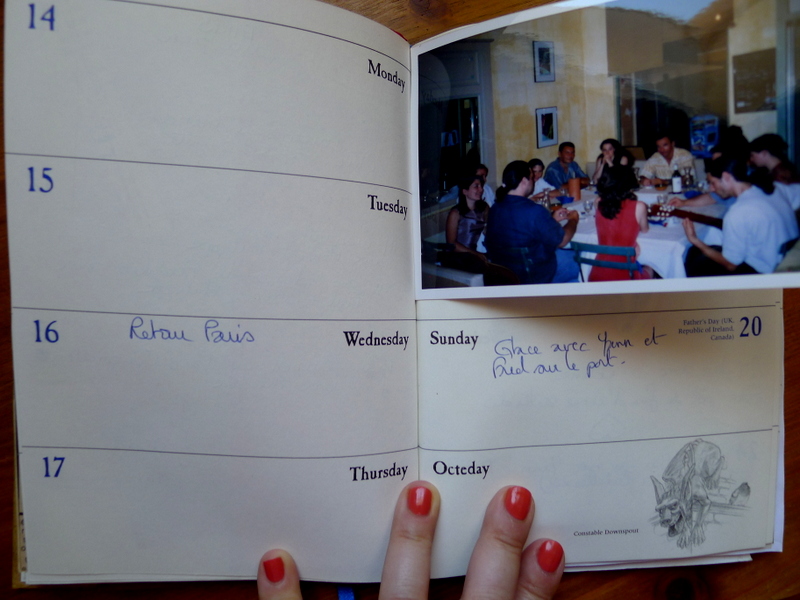 14
Monday
15
Tuesday
16
Retour Paris
Wednesday
17
Thursday
Sunday
Glace avec Yann et
Fred sur le port.
Father's Day (UK,
Republic of Ireland,
Canada)
20
Octeday
Constable Downspout